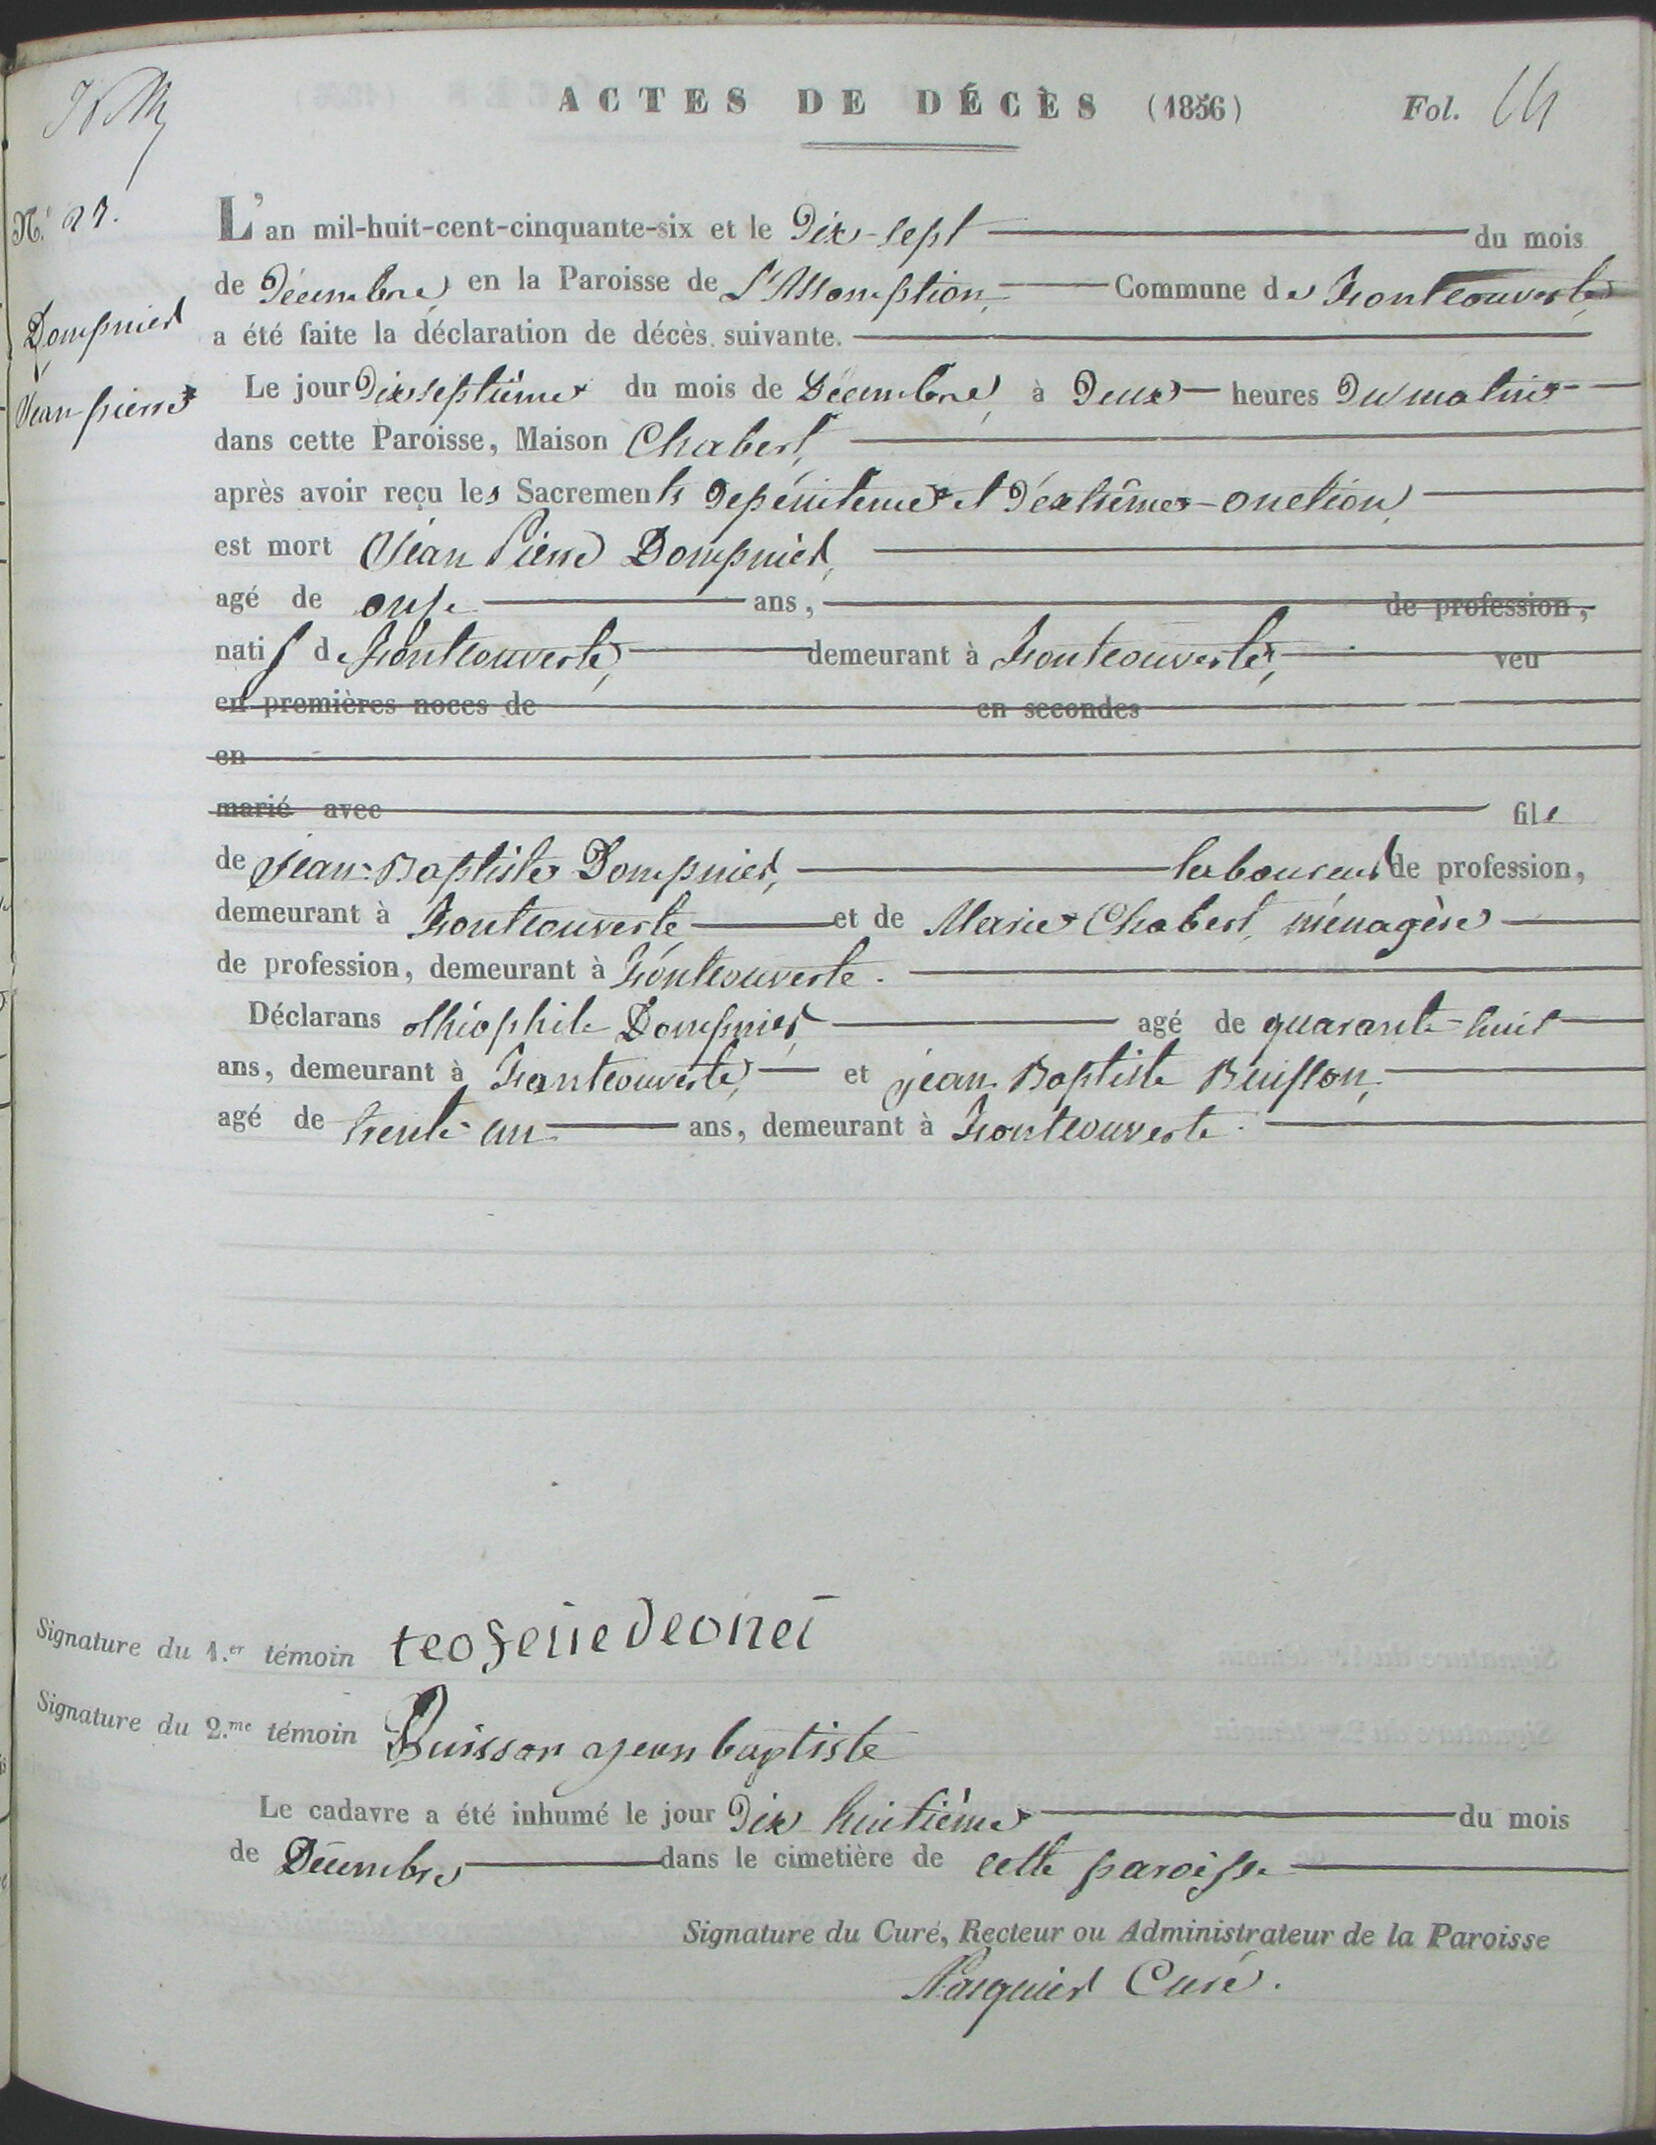 ACTES DE DÉCÈS (1856) Fol. 14
N.° 27.
Dompnier
Jean pierre
L'an mil-huit-cent-cinquante-six et le Dix-sept du mois
de Décembre en la Paroisse de L'Assomption, Commune de Fontcouverte,
a été faite la déclaration de décès suivante.
Le jour Dix septième du mois de Décembre, à Deux heures Du matin
dans cette Paroisse, Maison Chabert,
après avoir reçu les Sacrements De pénitence et D'extrême-onction,
est mort Jean Pierre Dompnier,
agé de onze ans, de profession,
natif de Fontcouverte, demeurant à Fontcouverte, veu
en premières noces de en secondes
en
marié avec fils
de Jean-Baptiste Dompnier, laboureur de profession,
demeurant à Fontcouverte et de Marie Chabert, ménagère
de profession, demeurant à Fontcouverte.
Déclarans Théophile Dompnier, agé de quarante-huit
ans, demeurant à Fontcouverte, et jean Baptiste Buisson,
agé de trente-un ans, demeurant à Fontcouverte.
Signature du 1.er témoin
Signature du 2.me témoin Buisson jean baptiste
Le cadavre a été inhumé le jour Dix huitième du mois
de Décembre dans le cimetière de cette paroisse
Signature du Curé, Recteur ou Administrateur de la Paroisse
Curé.